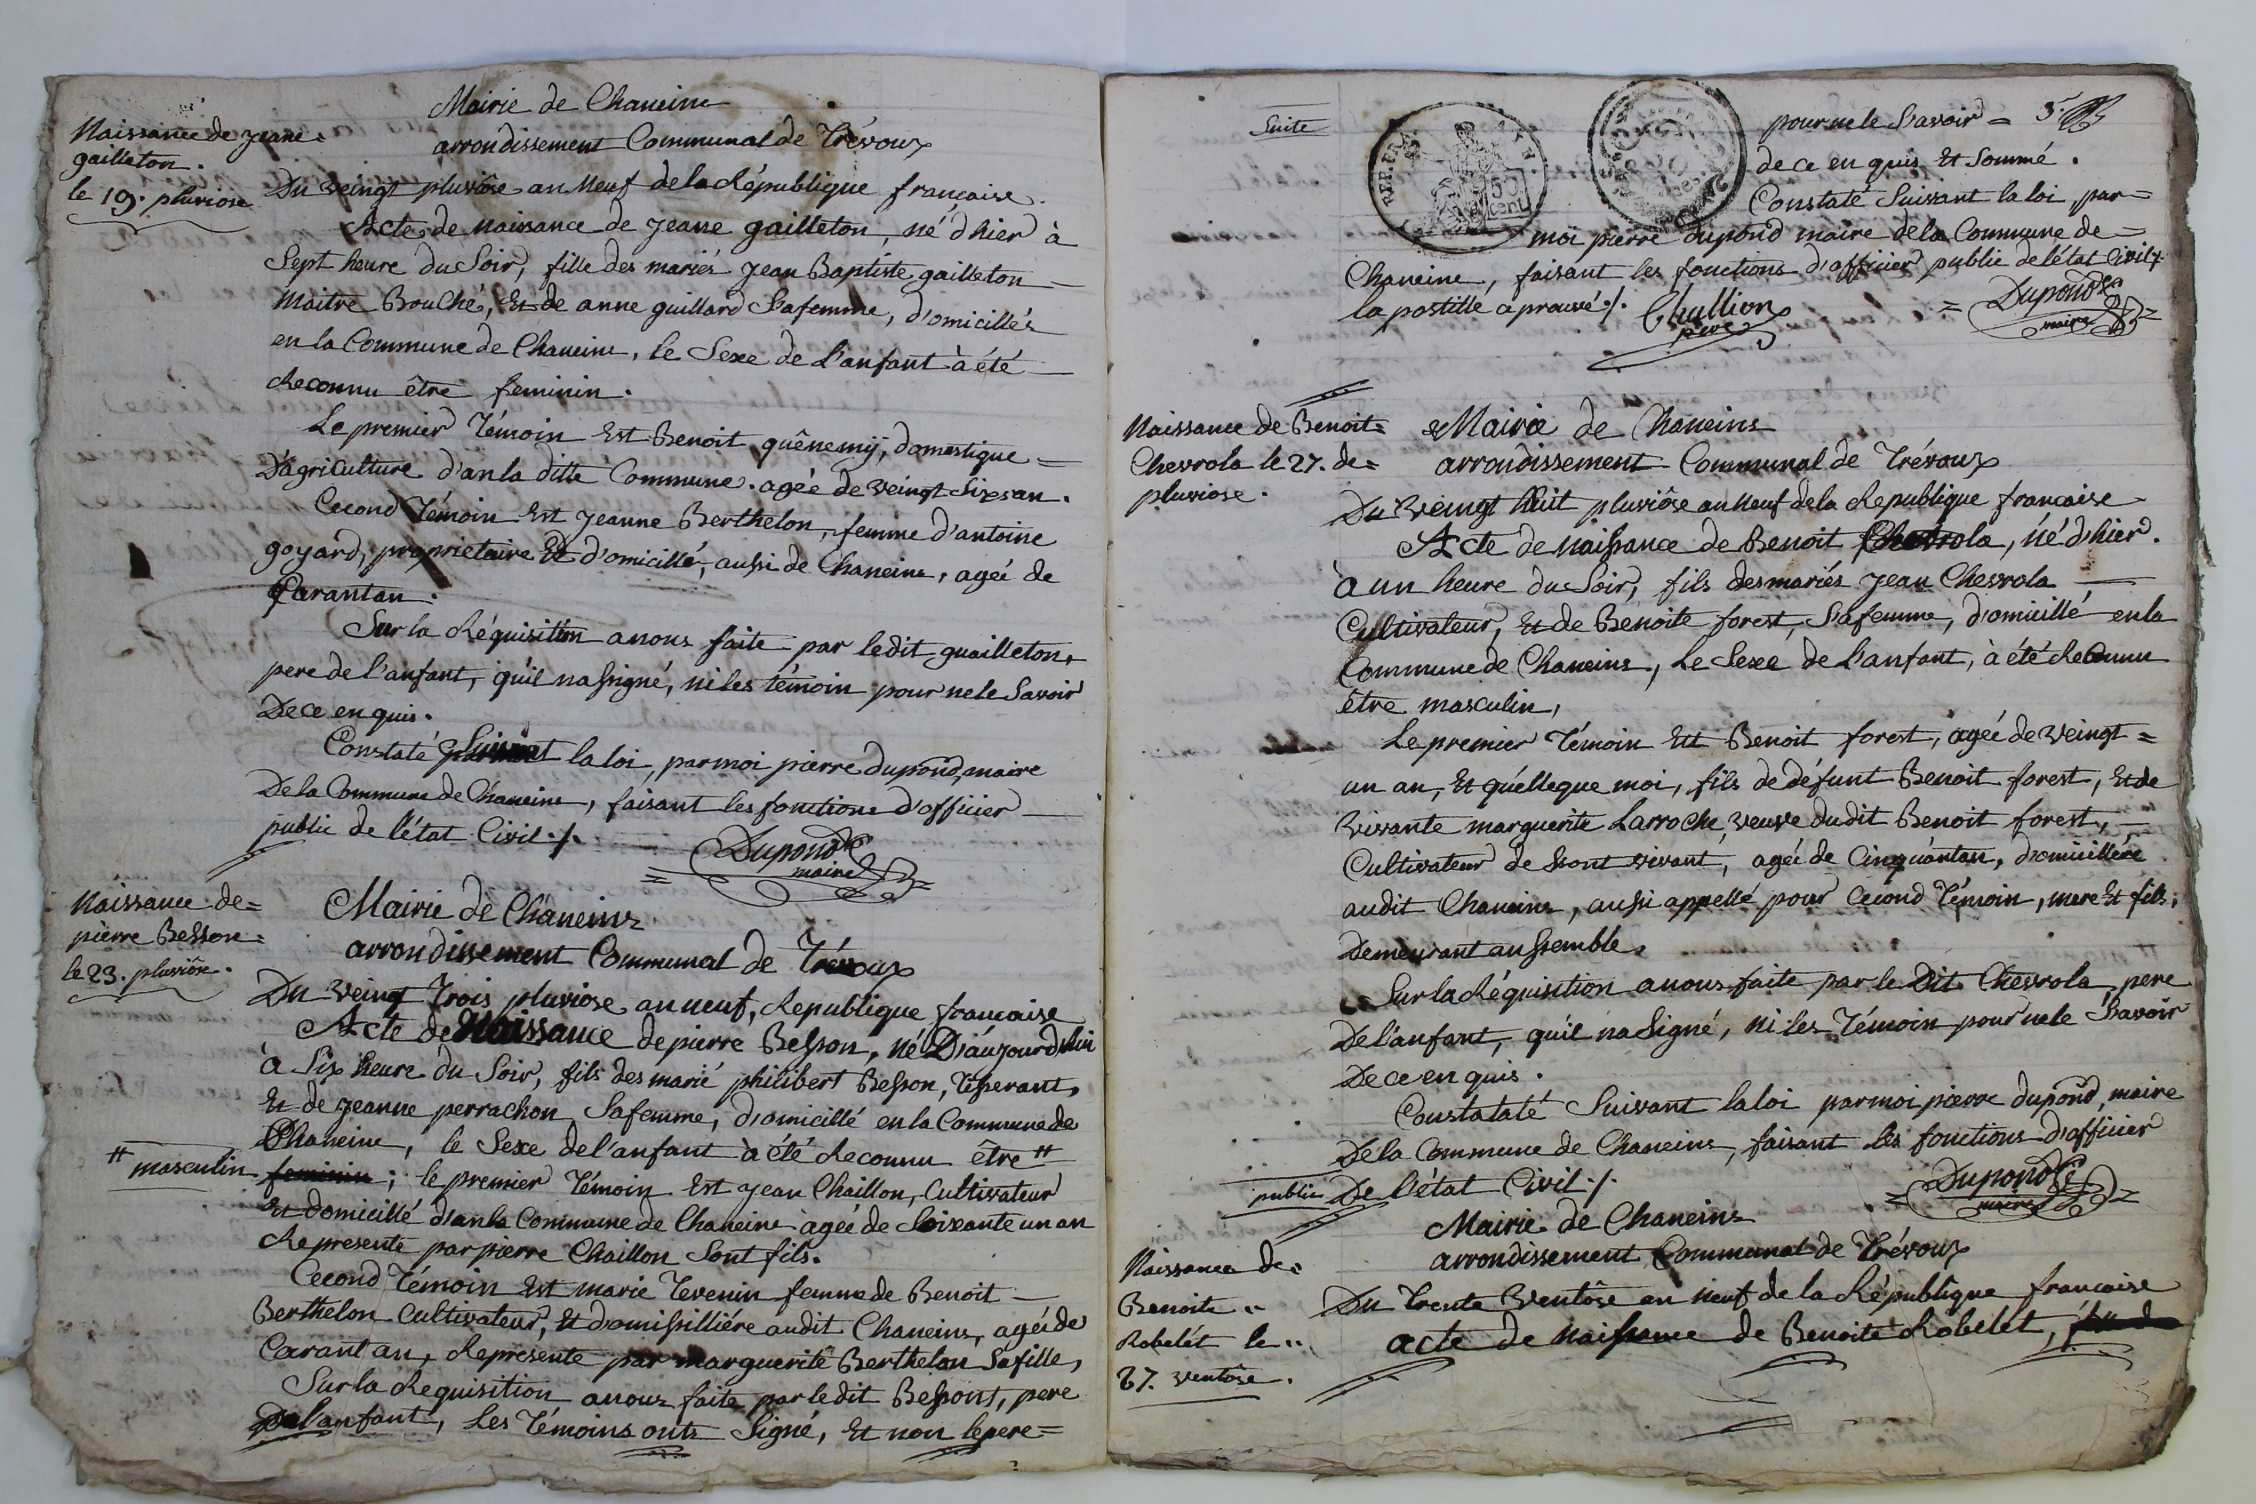 Naissance de jeane=
gailleton.
le 19. pluviose
Mairie de Chaneins
arrondissement Communal de Trévoux
Du veingt pluviôse an Neuf de la République française.
Acte de naissance de jeane gailleton, né d'hier à
Sept heure du Soir, fille des mariés jean Baptiste gailleton
Maitre Bouché, Et de anne guillard Safemme, d'omicillés
en la Commune de Chaneins, le Sexe de L'anfant à été
Reconnu être feminin.
Le premier Témoin Est Benoit quênemÿ, domestique=
D'agriculture d'an la ditte Commune. agée de veingt Six an.
Cecond Témoin Est jeanne Berthelon, femme d'antoine
goyard, proprietaire Et d'omicillé, aussi de Chaneins, agée de
Carantan.
Sur la Réquisition anous faite par ledit guailleton,
pere de l'anfant, qu'il na Signé, ni les témoin pour ne le Savoir
De ce en quis.
Constaté Suivant la loi, par moi pierre dupond, maire
De la Commune de Chaneins, faisant les fonctions d'officier
public de l'état Civil ./.
Dupond
maire
Naissance de=
pierre Besson=
le 23. pluviôse.
Mairie de Chaneins
arrondissement Communal de Trévoux
Du veingt Trois pluviose an neuf, Republique francaise
Acte de Naissance de pierre Besson, né D'áujourdhui
à Six heure du Soir, fils des marié philibert Besson, Tisserant,
Et de jeanne perrachon Safemme, d'omicillé en la Commune de
Chaneins, le Sexe de l'anfant à été Reconnu être #
# masculin
feminin; le premier Témoin Est jean Chaillon, Cultivateur
Et domicillé d'an la Commune de Chaneins agée de Soixante un an
Represente par pierre Chaillon Sont fils.
Cecond Témoin Est marie Tevenin femme de Benoit
Berthelon Cultivateur, Et d'omissilliére audit Chaneins, agée de
Carant an, Represente par marguerite Berthelon Safille,
Sur la Requisition anous faite par le dit Bessont, pere
De l'anfant, Les Témoins onts Signé, Et non le pere=
Suite
REP. FRA.
50
cent
pour ne le Savoir = 3.
de ce en quis Et Sommé.
Constaté Suivant la loi par=
moi pierre dupond maire de la Commune de=
Chaneins, faisant les fonctions d'officier public de l'état Civil ./.
la postille aprouvé ./. Chaillion
pere
Dupond
maire
Naissance de Benoit=
Chevrola le 27. de=
pluviose.
Mairie de Chaneins
arrondissement Communal de Trévoux
Du Veingt huit pluviôse an neuf de la Republique francaise
Acte de naissance de Benoit Chevrola, né d'hier.
à un heure du Soir, fils des mariés jean Chevrola
Cultivateur, Et de Benoite forest, Safemme, d'omicillé en la
Commune de Chaneins, Le Sexe de L'anfant, à été Reconnu
être masculin,
Le premier Témoin Est Benoit forest, agée de veingt=
un an, Et quélleque moi, fils de défunt Benoit forest, Et de
vivante marguerite Larroche, veuve dudit Benoit forest,
Cultivateur de Sont vivant, agée de Cinquantan, d'omicillére
audit Chaneins, aussi appellé pour Cecond Témoin, mere Et fils,
Demeurant anssemble.
Sur la Réquisition anous faite par le Dit Chevrola, pere
De l'anfant, quil na Signé, ni les Témoin pour ne le Savoir
De ce en quis.
Constataté Suivant la loi par moi pierre dupond, maire
De la Commune de Chaneins, faisant les fonctions D'officier
public De l'état Civil ./.
Dupond
maire
Naissance de=
Benoite =
Robelét le =
27. ventôse.
Mairie de Chaneins
arrondissement Communal de Trévoux
Du Trente Ventôse an neuf de la République francaise
acte de naissance de Benoite Robelet,